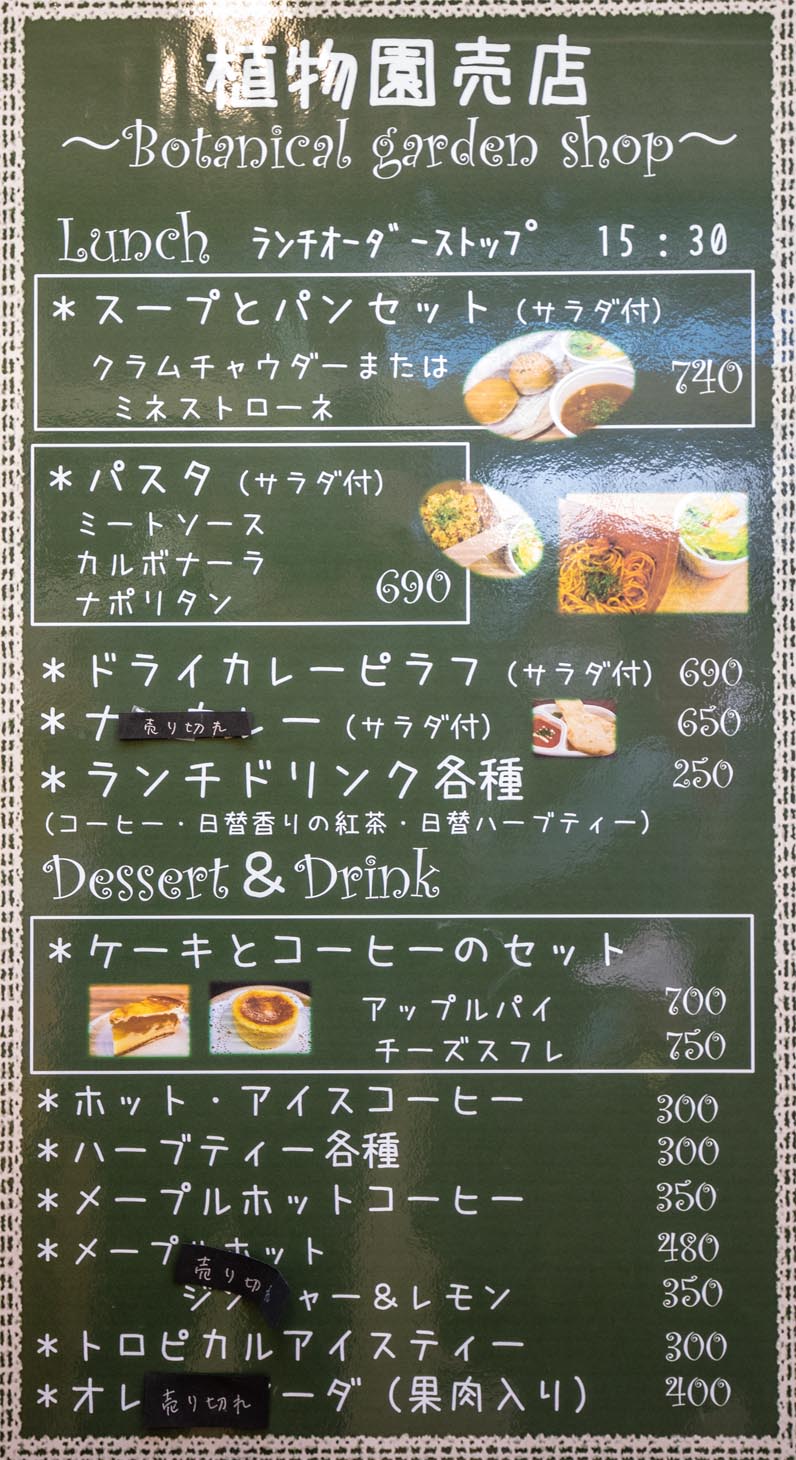 植物園売店
～Botanical garden shop～
Lunch ランチオーダーストップ 15：30
＊スープとパンセット（サラダ付）
クラムチャウダーまたは
ミネストローネ 740
＊パスタ（サラダ付）
ミートソース
カルボナーラ
ナポリタン 690
＊ドライカレーピラフ（サラダ付） 690
＊ナ 売り切れ レー（サラダ付） 650
＊ランチドリンク各種 250
（コーヒー・日替香りの紅茶・日替ハーブティー）
Dessert & Drink
＊ケーキとコーヒーのセット
アップルパイ 700
チーズスフレ 750
＊ホット・アイスコーヒー 300
＊ハーブティー各種 300
＊メープルホットコーヒー 350
＊メープルホット 480
売り切
ジンジャー＆レモン 350
＊トロピカルアイスティー 300
＊オレ 売り切れ ーダ（果肉入り） 400